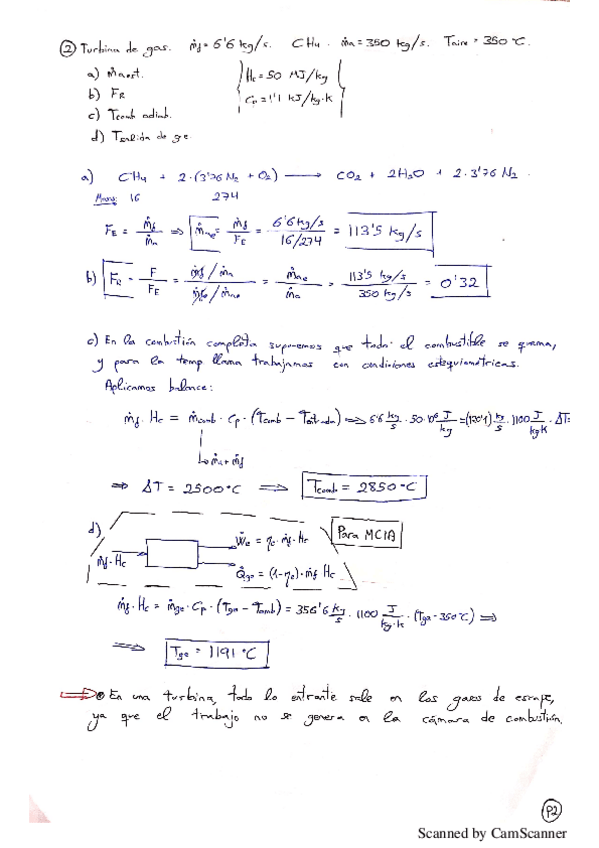 ② Turbina de gas. ṁf = 6'6 kg/s. CH4. ṁa = 350 kg/s. Taire = 350 °C.
a) ṁa est.
b) FR
c) Tcomb adiab.
d) Tsalida de ge.
Hc = 50 MJ/kg
Cp = 1'1 KJ/kg·K
a) CH4 + 2·(3'76 N2 + O2) ⟶ CO2 + 2H2O + 2·3'76 N2
Masa: 16 274
FE = ṁf/ṁa ⇒ ṁae = ṁf/FE = 6'6 kg/s / 16/274 = 113'5 kg/s
b) FR = F/FE = ṁf/ṁa / ṁf/ṁae = ṁae/ṁa = 113'5 kg/s / 350 kg/s = 0'32
c) En la combustión completa suponemos que todo el combustible se quema,
y para la temp llama trabajamos con condiciones estequiométricas.
Aplicamos balance:
ṁf · Hc = ṁcomb · Cp · (Tcomb − Tentrada) ⇒ 6'6 kg/s · 50·10⁶ J/kg = (120'1) kg/s · 1100 J/kgK · ΔT
ṁa + ṁf
⇒ ΔT = 2500 °C ⇒ Tcomb = 2850 °C
d)
Para MCIA
ṁf·Hc
Ẇe = ηe · ṁf · Hc
Q̇ge = (1−ηe) · ṁf Hc
ṁf · Hc = ṁge · Cp · (Tge − Tamb) = 356'6 kg/s · 1100 J/kg·K · (Tge − 350 °C) ⇒
⇒ Tge = 1191 °C
En una turbina, todo lo entrante sale en los gases de escape,
ya que el trabajo no se genera en la cámara de combustión.
P2
Scanned by CamScanner